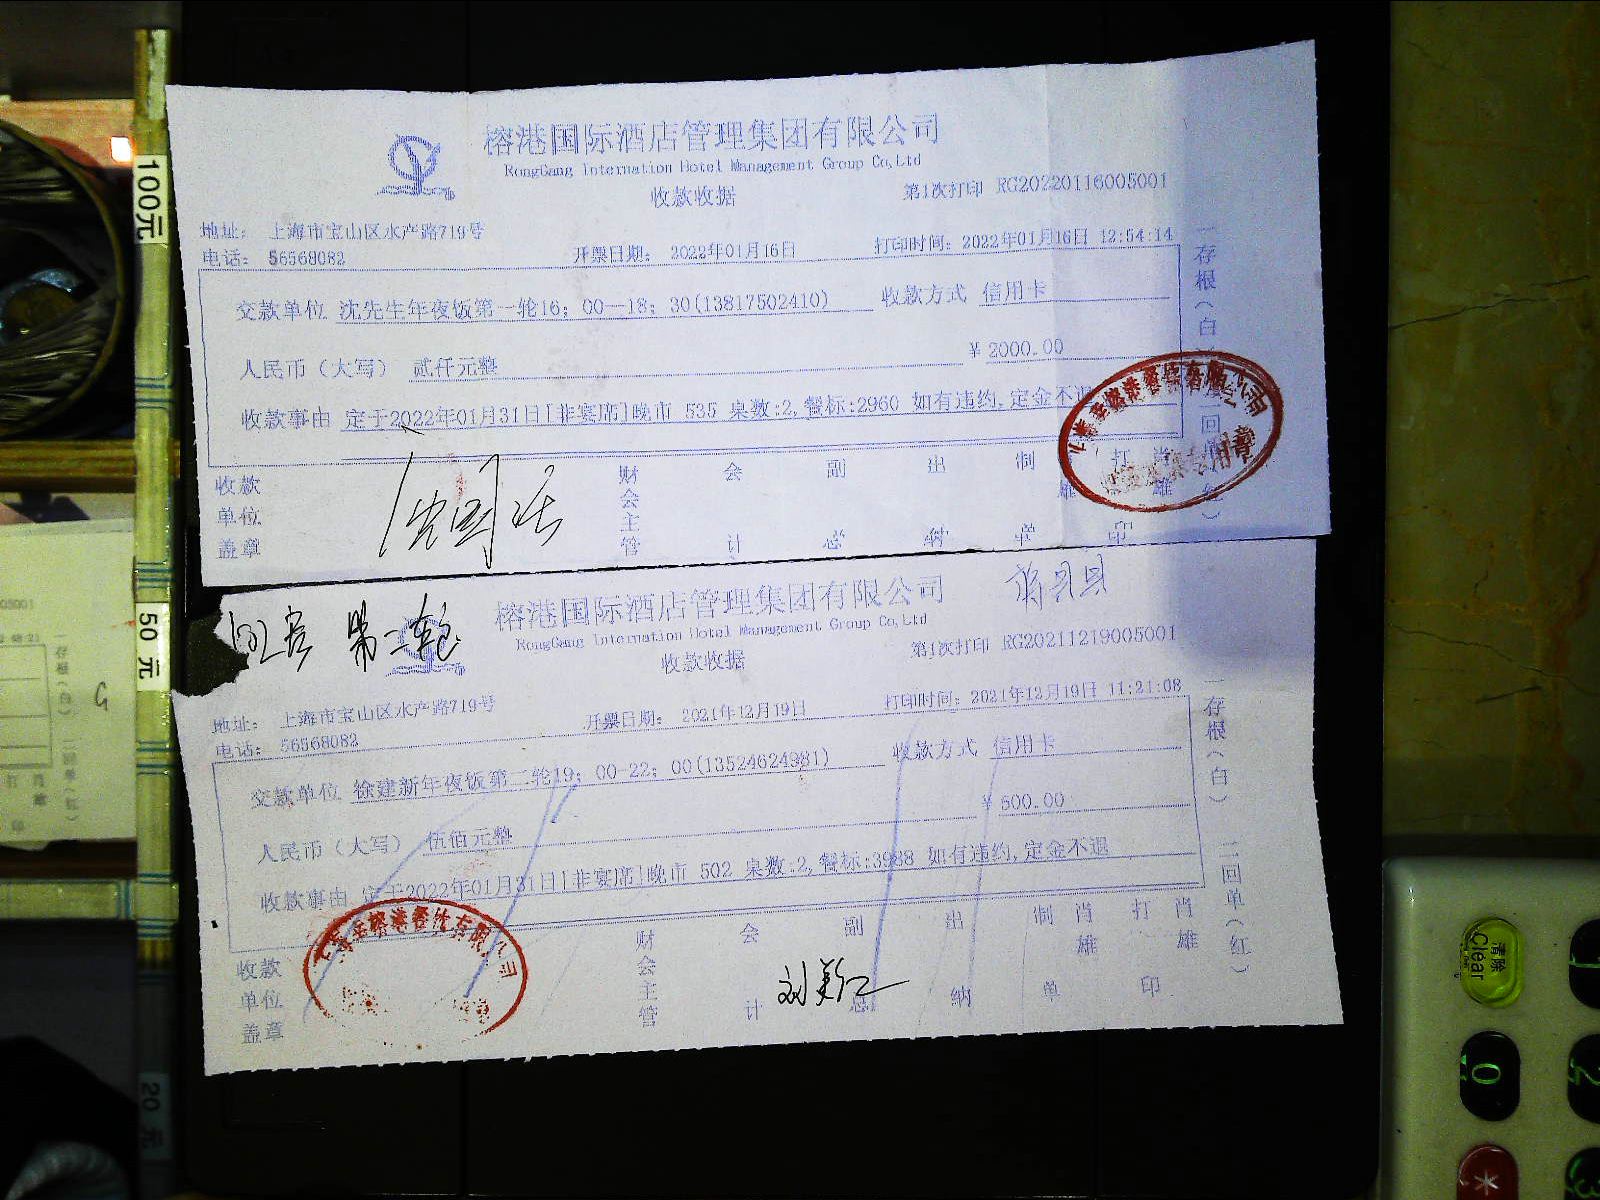 榕港国际酒店管理集团有限公司
RongGang International Hotel Management Group Co,Ltd
收款收据
第1次打印 RG20220116005001
地址： 上海市宝山区水产路719号
电话： 56568082
开票日期： 2022年01月16日
打印时间：2022年01月16日 12:54:14
交款单位 沈先生年夜饭第一轮16；00—18；30(13817502410)
收款方式 信用卡
人民币（大写） 贰仟元整
￥2000.00
收款事由 定于2022年01月31日[非宴席]晚市 535 桌数:2,餐标:2960 如有违约,定金不退
收款单位盖章
财会主管
会计
副总
出纳
制单
打印
肖雄
存根（白）
二回单（红）
榕港国际酒店管理集团有限公司
RongGang International Hotel Management Group Co,Ltd
收款收据
第二轮
第1次打印 RG20211219005001
地址： 上海市宝山区水产路719号
电话： 56568082
开票日期： 2021年12月19日
打印时间：2021年12月19日 11:21:08
交款单位 徐建新年夜饭第二轮19；00-22；00(13524624981)
收款方式 信用卡
人民币（大写） 伍佰元整
￥500.00
收款事由 定于2022年01月31日[非宴席]晚市 502 桌数:2,餐标:3988 如有违约,定金不退
收款单位盖章
财会主管
会计
副总
出纳
制单 肖雄
打印 肖雄
一存根（白）
二回单（红）
100元
50元
20元
清除
Clear
0